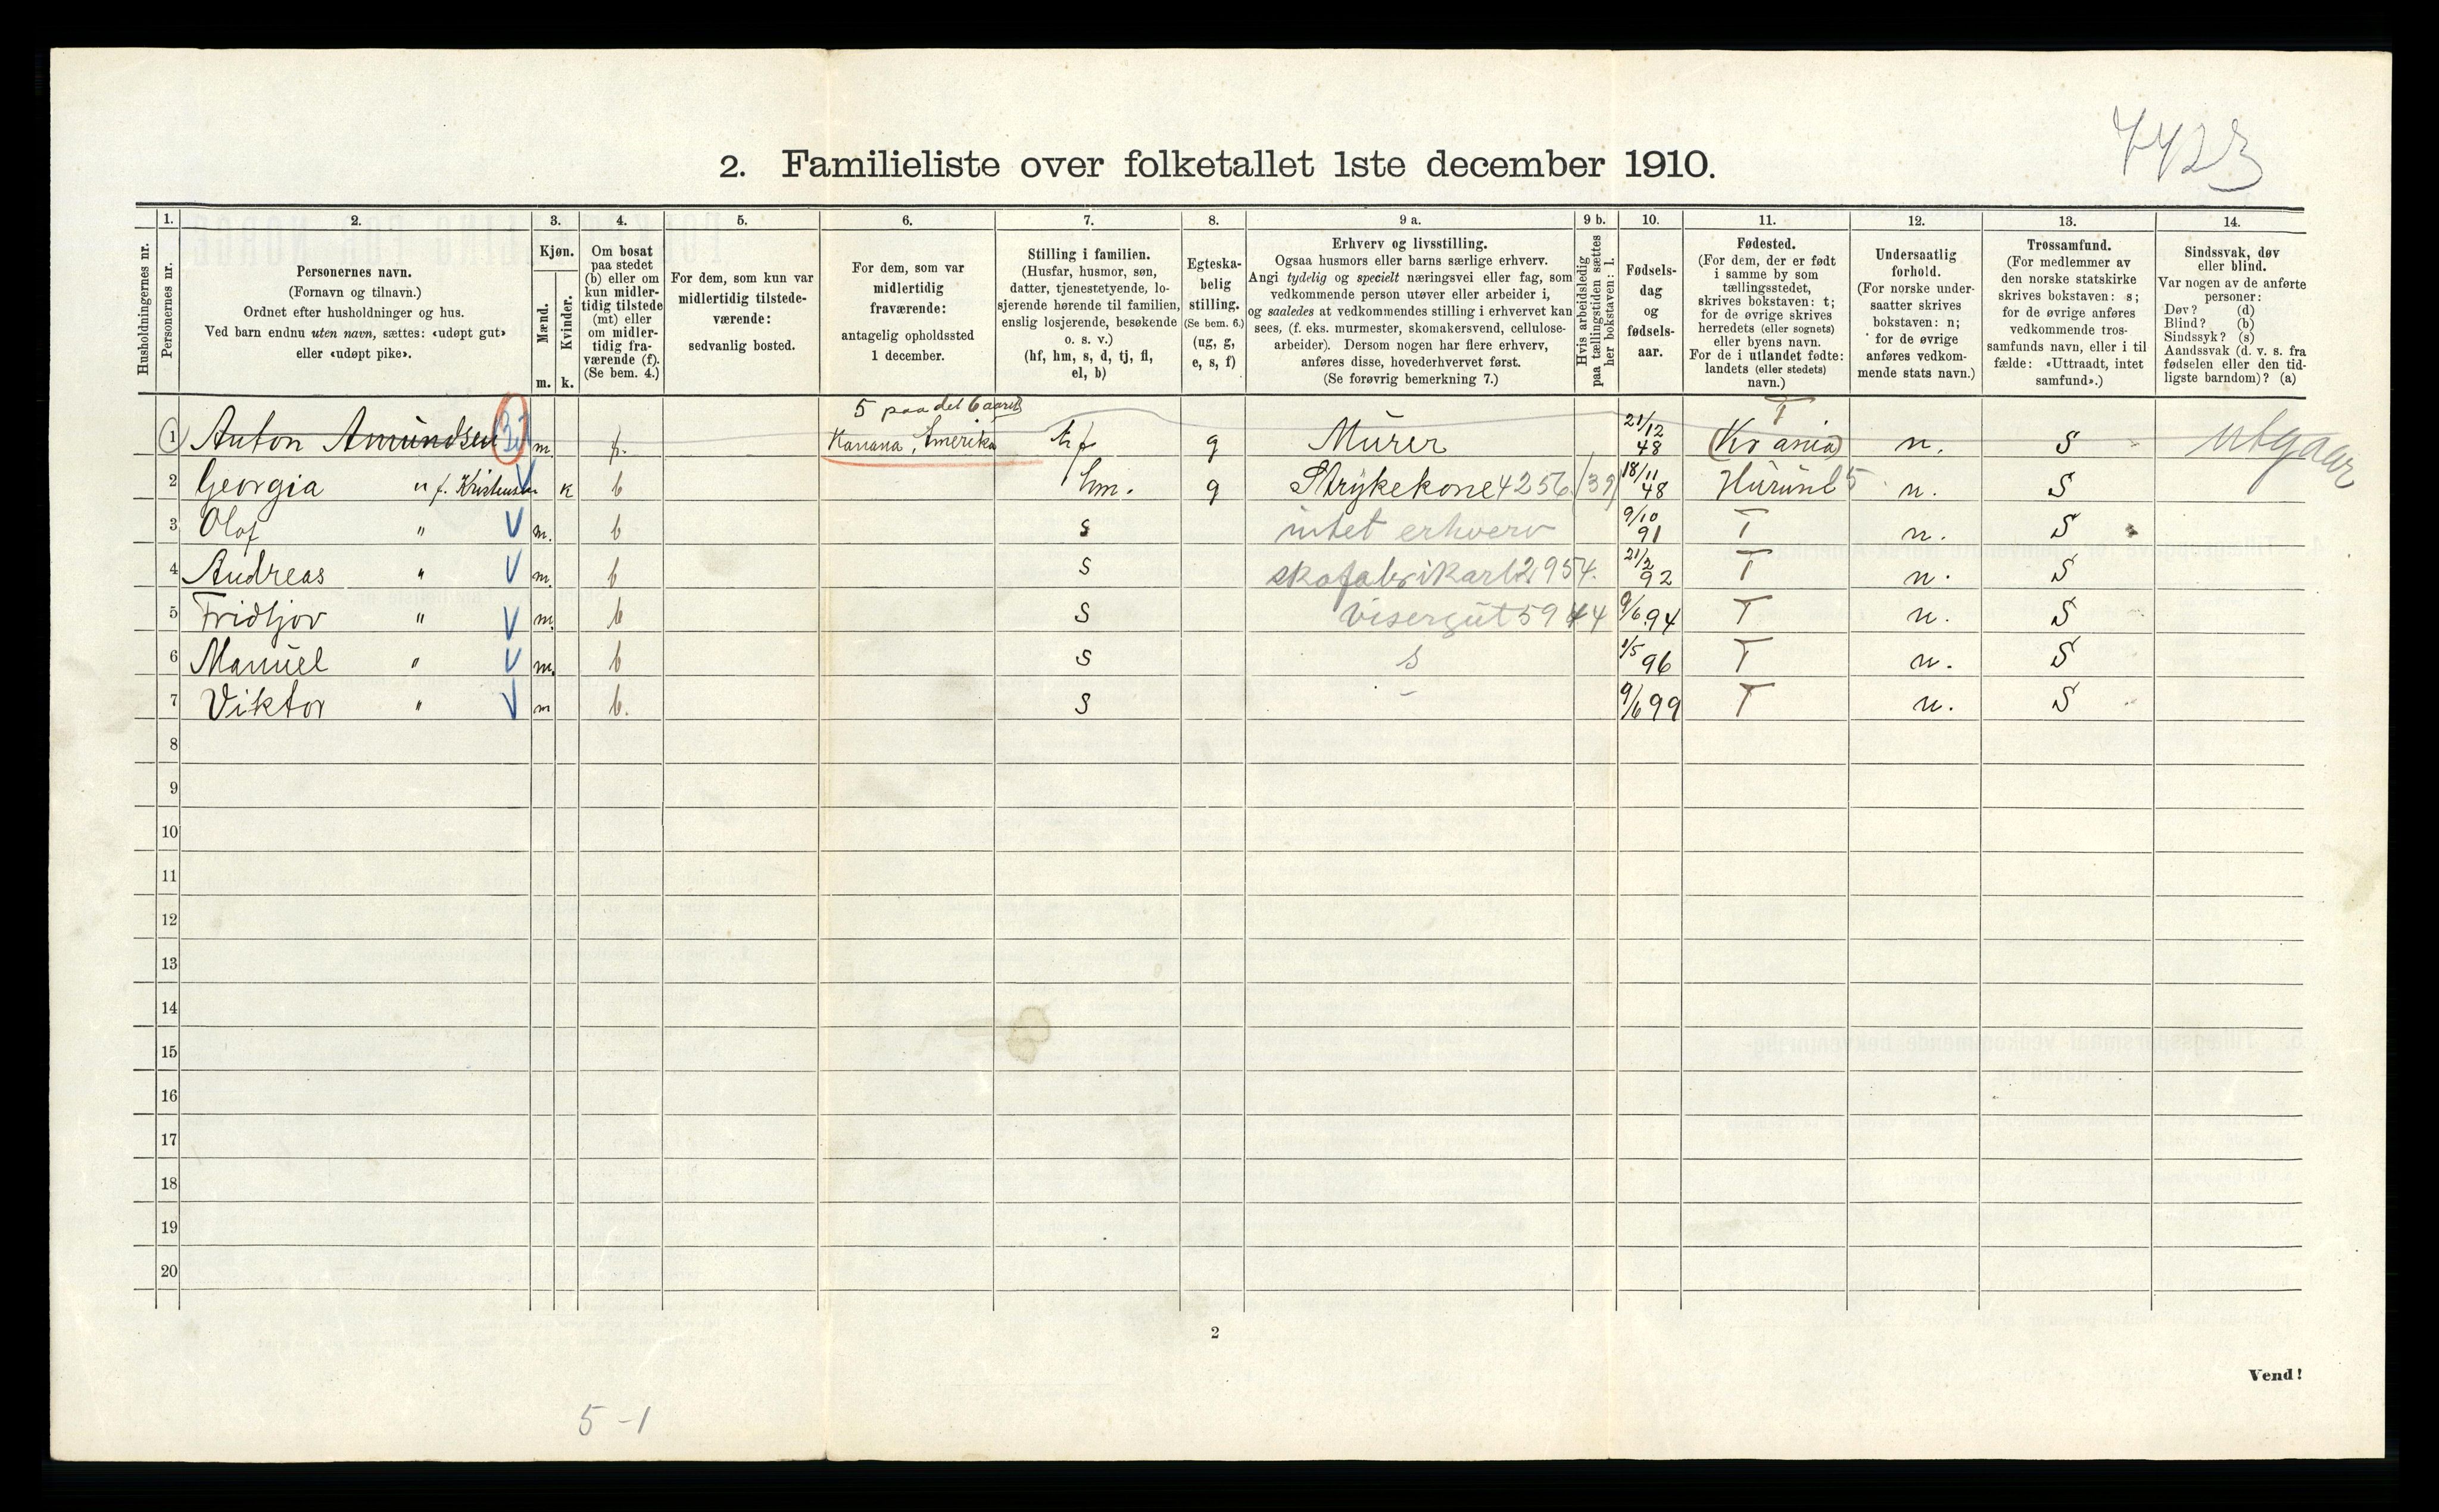 7423
2. Familieliste over folketallet 1ste december 1910.
1. 2. 3. 4. 5. 6. 7. 8. 9 a. 9 b. 10. 11. 12. 13. 14.
Husholdningernes nr.
Personernes nr.
Personernes navn.
(Fornavn og tilnavn.)
Ordnet efter husholdninger og hus.
Ved barn endnu uten navn, sættes: «udøpt gut»
eller «udøpt pike».
Kjøn.
Mænd.
Kvinder.
m. k.
Om bosat
paa stedet
(b) eller om
kun midler-
tidig tilstede
(mt) eller
om midler-
tidig fra-
værende (f).
(Se bem. 4.)
For dem, som kun var
midlertidig tilstede-
værende:
sedvanlig bosted.
For dem, som var
midlertidig
fraværende:
antagelig opholdssted
1 december.
Stilling i familien.
(Husfar, husmor, søn,
datter, tjenestetyende, lo-
sjerende hørende til familien,
enslig losjerende, besøkende
o. s. v.)
(hf, hm, s, d, tj, fl,
el, b)
Egteska-
belig
stilling.
(Se bem. 6.)
(ug, g,
e, s, f)
Erhverv og livsstilling.
Ogsaa husmors eller barns særlige erhverv.
Angi tydelig og specielt næringsvei eller fag, som
vedkommende person utøver eller arbeider i,
og saaledes at vedkommendes stilling i erhvervet kan
sees, (f. eks. murmester, skomakersvend, cellulose-
arbeider). Dersom nogen har flere erhverv,
anføres disse, hovederhvervet først.
(Se forøvrig bemerkning 7.)
Hvis arbeidsledig
paa tællingstiden sættes
her bokstaven: l.
Fødsels-
dag
og
fødsels-
aar.
Fødested.
(For dem, der er født
i samme by som
tællingsstedet,
skrives bokstaven: t;
for de øvrige skrives
herredets (eller sognets)
eller byens navn.
For de i utlandet fødte:
landets (eller stedets)
navn.)
Undersaatlig
forhold.
(For norske under-
saatter skrives
bokstaven: n;
for de øvrige
anføres vedkom-
mende stats navn.)
Trossamfund.
(For medlemmer av
den norske statskirke
skrives bokstaven: s;
for de øvrige anføres
vedkommende tros-
samfunds navn, eller i til
fælde: «Uttraadt, intet
samfund».)
Sindssvak, døv
eller blind.
Var nogen av de anførte
personer:
Døv? (d)
Blind? (b)
Sindssyk? (s)
Aandssvak (d. v. s. fra
fødselen eller den tid-
ligste barndom)? (a)
5 paa det 6 aaret T
1 Anton Amundsen m. f. Amerika hf g Murer 21/12 48 (Kr ania) n. S utgaar
2 Georgia " f. Kristensen k b hm. g Strykekone 4256 (39) 18/11 48 Hurum 5 n. S
3 Olaf " V m. b s intet erhverv 9/10 91 T n. S
4 Andreas " V m. b s skofabrikarb 2954. 21/2 92 T n. S
5 Fridtjov " V m. b s visergut 5944 9/6 94 T n. S
6 Manuel " V m. b s s 1/5 96 T n. S
7 Viktor " V m b. s - 9/6 99 T n. S
8
9
10
11
12
13
14
15
16
17
18
19
20
2
Vend!
5 - 1